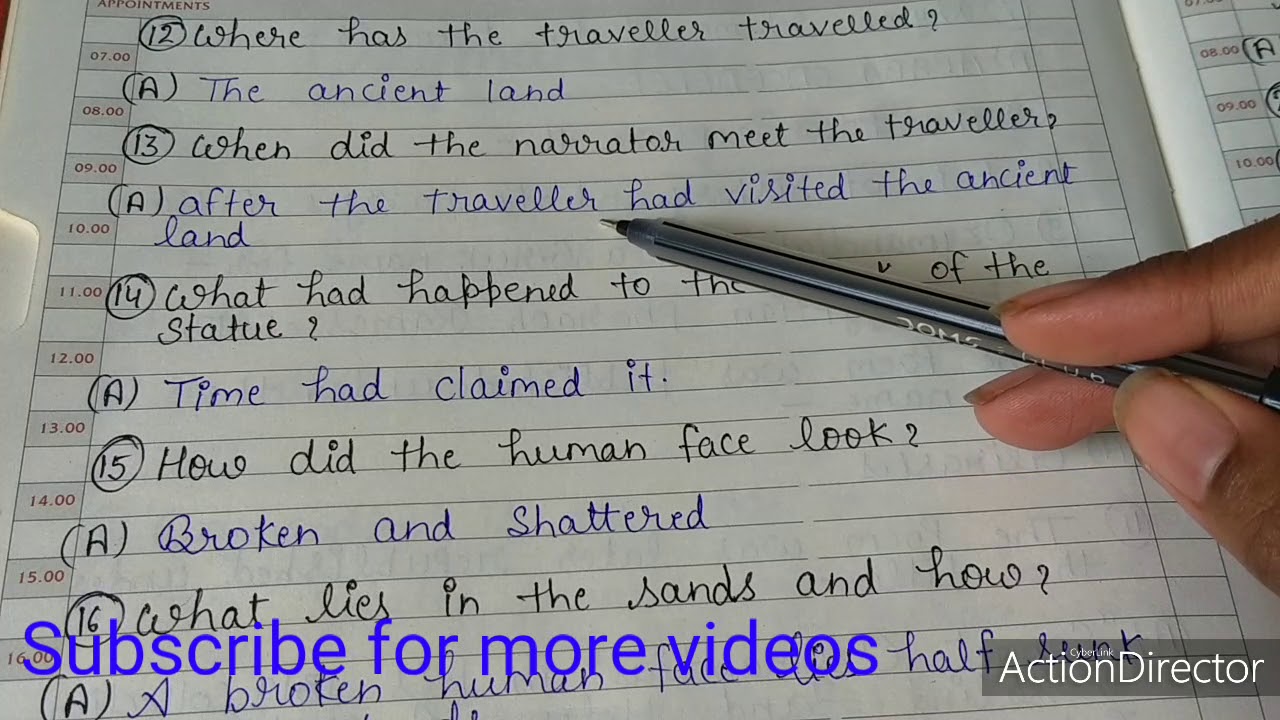 APPOINTMENTS
(12) Where has the traveller travelled?
07.00
(A) The ancient land
08.00
(13) When did the narrator meet the traveller?
09.00
(A) after the traveller had visited the ancient
10.00
land
11.00 (14) What had happened to the of the
Statue?
12.00
(A) Time had claimed it.
13.00
(15) How did the human face look?
14.00
(A) Broken and Shattered
15.00
(16) What lies in the sands and how?
16.00
(A) A broken human face lies half sunk
Subscribe for more videos
CyberLink
ActionDirector
DOMS
08.00 (A
09.00
10.00